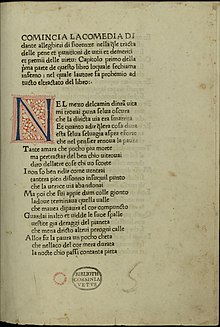 COMINCIA LACOMEDIA DI
dante alleghieri di fiorenze nella q̃le tracta
delle pene et punitioni de uitii et demeriti
et premii delle uirtu: Capitolo primo della
p̃ma parte de questo libro loquale sechiama
inferno: nel quale lautore fa prohemio ad
tucto eltractato del libro:·
NEL mezo delcamin dinr̃a uita
mi trouai puna selua oscura
che la diricta uia era smarrita
Et quanto adir q̃lera cosa dura
esta selua seluagia aspra eforte
che nel pensier renoua la paura
Tante amara che pocho piu morte
ma pertractar del ben chio uitrouai
diro dellaltre cose chi uo scorte
I non so ben ridir come uentrai
tantera pien disonno insuquel punto
che la uerace uia abandonai
Ma poi che fui appie dum colle gionto
ladoue terminaua quella ualle
che mauea dipaura el cor compuncto
Guardai inalto et uidde le sue spalle
uestite gia deraggi del pianeta
che mena dricto altrui perogni calle
Allor fu la paura un pocho cheta
che nellaco del cor mera durata
la nocte chio passai contanta pieta
BIBLIOTH
VETUS